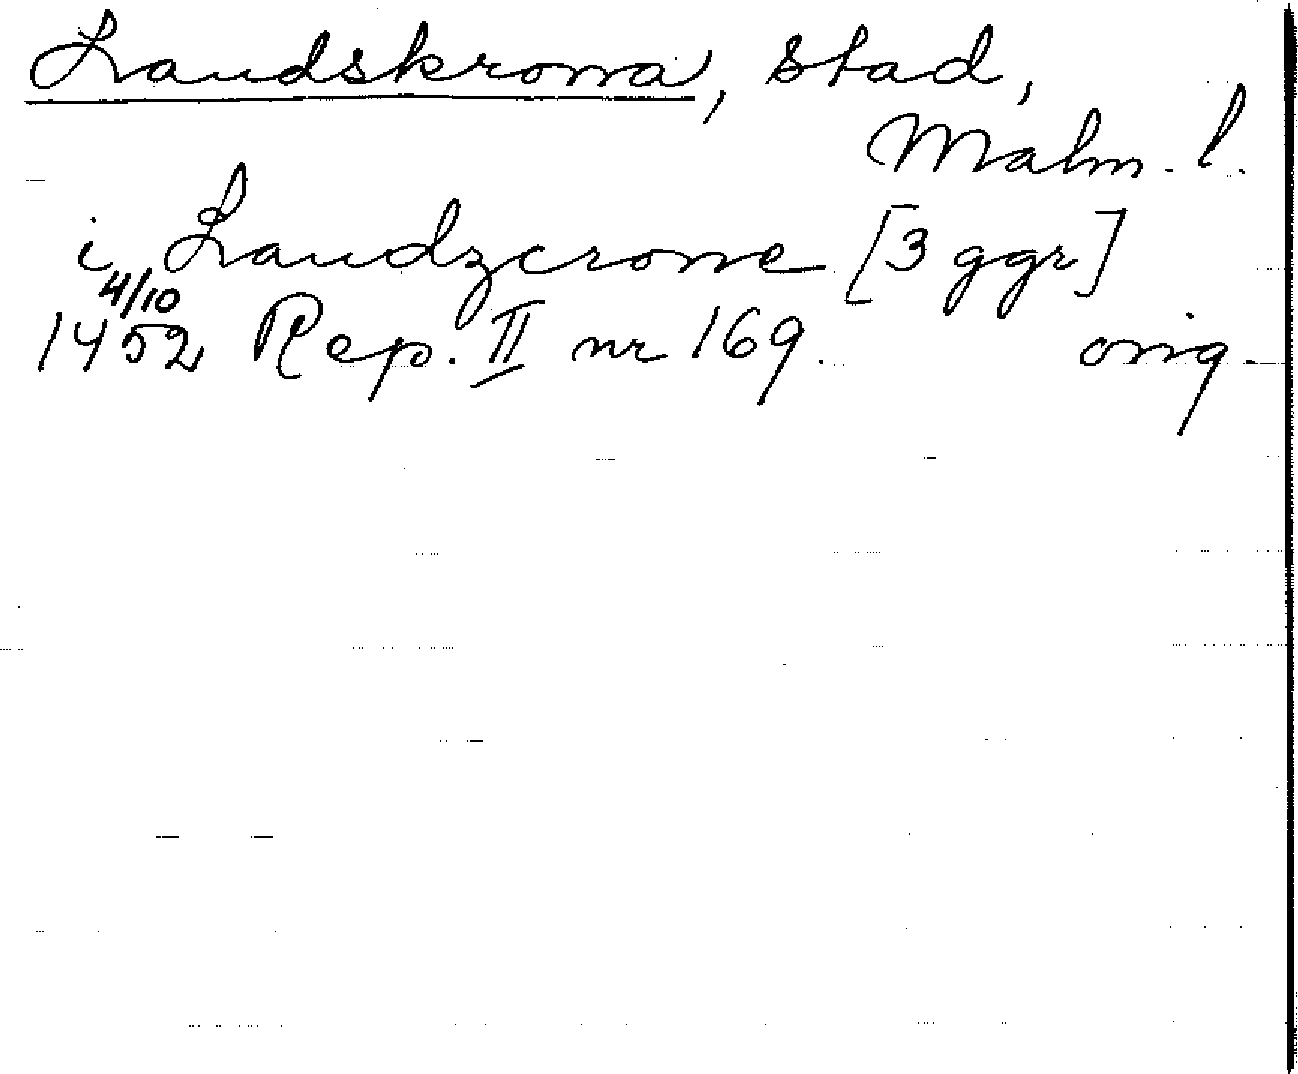 Landskrona, stad,
Malm. l.
i Landzcrone [3 ggr]
4/10
1452 Rep. II nr 169. orig.